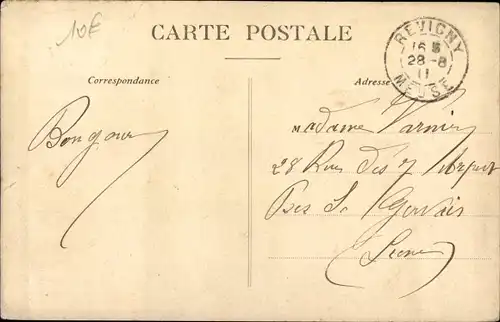 10€
CARTE POSTALE
REVIGNY
16
28-8
11
MEUSE
Correspondance
Adresse
Bonjour
Madame Varnier
28 Rue des 7 Arpents
Prés St Gervais
Seine